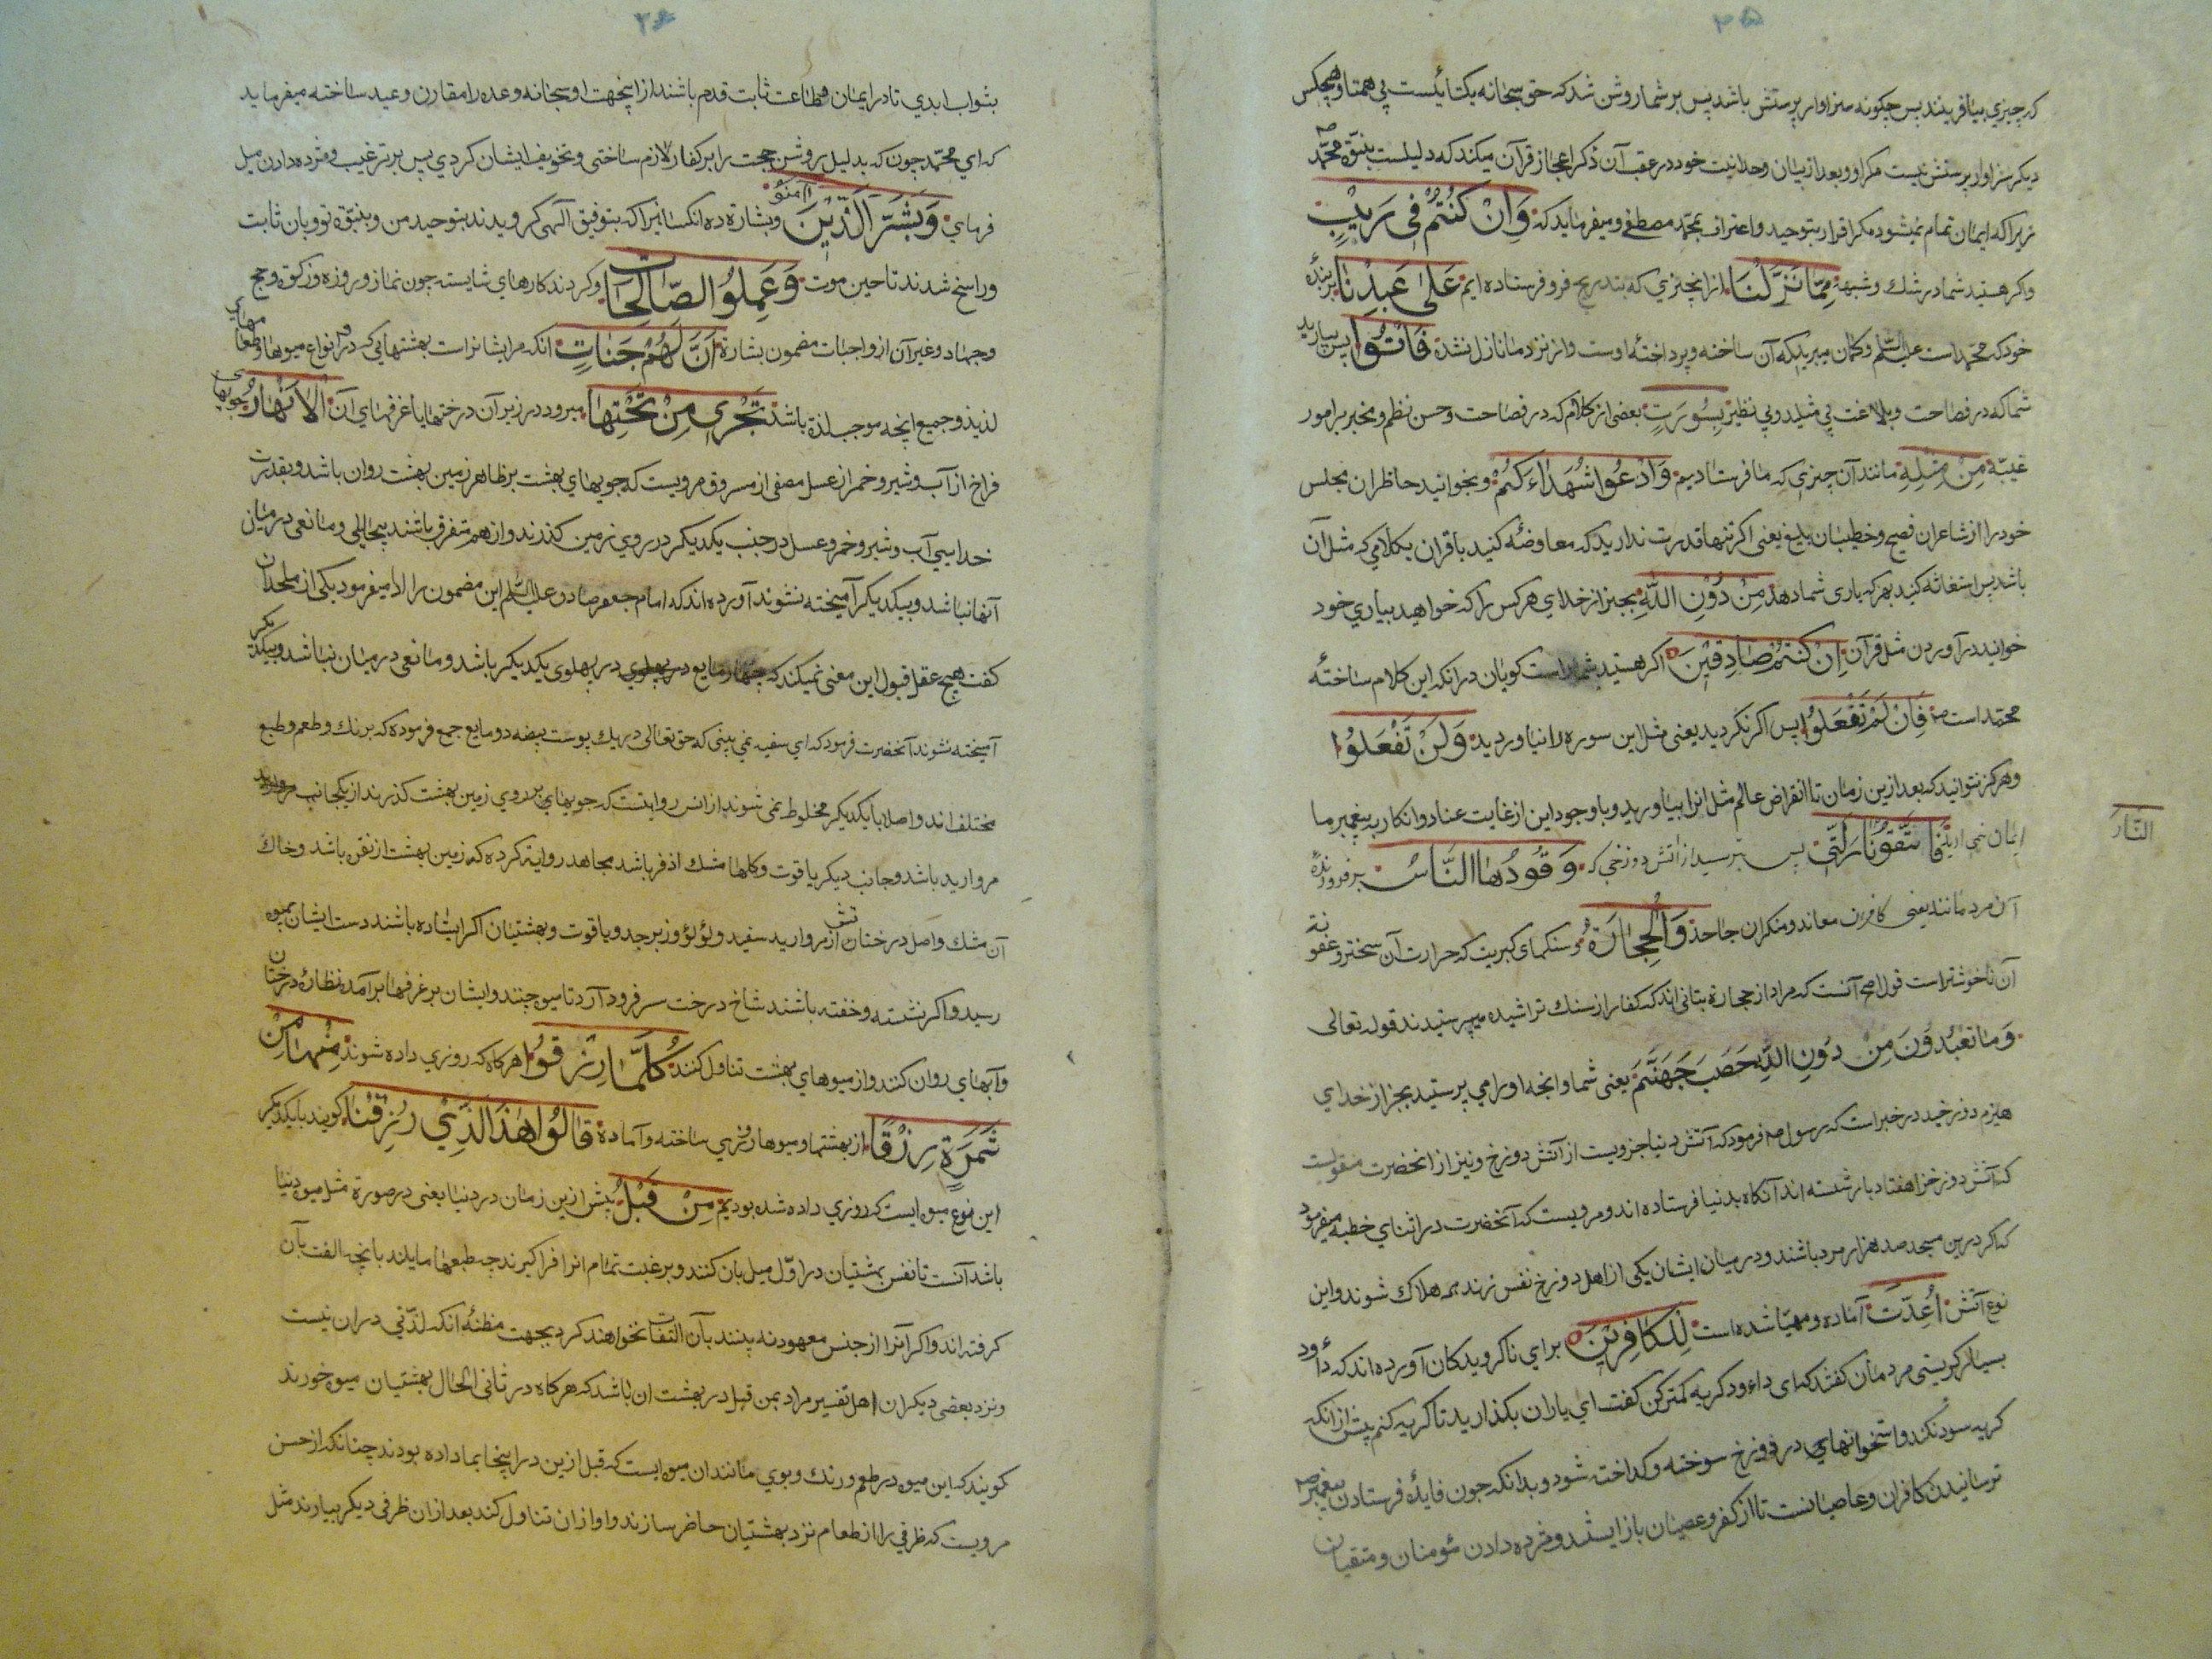 ۲۵
که چیزی بیافرینند پس چکونه سزاوار پرستش باشد پس بر شما روشن شد که حق سبحانه یکتائیست بی همتا و هیچکس
دیکر سزاوار پرستش نیست مکر او و بعد از بیان وحدانیت خود در عقب آن ذکر اعجاز قرآن میکند که دلیلست بنبوّة محمّد
زیرا که ایمان تمام نمیشود مکر اقرار بتوحید و اعتراف بمحمّد مصطفی و میفرماید که وَاِنْ كُنْتُمْ فِى رَيْبٍ
واکر هستید شما در شك و شبهه مِمَّا نَزَّلْنَا از انچیزی که بتدریج فرو فرستاده ایم عَلىٰ عَبْدِنَا بر بندهٔ
خود که محمّد است علیه السّلم وکمان میبرید که آن ساخته و پرداختهٔ اوست و از نزد ما نازل نشده فَاْتُوا پس بیارید
شما که در فصاحت و بلاغت بی مثلید و بی نظیر بِسُورَتٍ بعضی از کلام که در فصاحت و حسن نظم و مخبر بر امور
غیبیّه مِنْ مِثْلِهِ مانند آن چیزی که ما فرستادیم وَادْعُوا شُهَدَاءَكُمْ و بخوانید حاظران مجلس
خود را از شاعران فصیح و خطیبان بلیغ یعنی اکر تنها قدرت ندارید که معاوضهٔ کنید با قران بکلامی که مثل آن
باشد پس استغاثه کنید بهر که یاری شما دهد مِنْ دُوْنِ اللّٰهِ بجز از خدای هر کس را که خواهید بیاری خود
خوانید در آوردن مثل قرآن اِنْ كُنْتُمْ صَادِقِيْنَ اکر هستید شما راست کویان در انکه این کلام ساختهٔ
محمّد است فَاِنْ لَمْ تَفْعَلُوا پس اکر نکردید یعنی مثل این سوره را نیاوردید وَلَنْ تَفْعَلُوا
و هرکز نتوانید که بعد ازین زمان تا انقراض عالم مثل انرا بیاورید و با وجود این از غایت عناد و انکار به پیغمبر ما
ایمان نمی ارید فَاتَّقُوْا نَارَ الَّتِى پس بترسید از آتش دوزخی که وَقُوْدُهَا النَّاسُ بر فروزندهٔ
النَّارَ
آن مردمانند یعنی کافران معاند و منکران جاحد وَالْحِجَارَةُ و سنکهای کبریت که حرارت آن سختر و عفونة
آن ناخوشتر است قول اصح آنست که مراد از حجارة بتانی اند که کفار از سنك تراشیده میپرستیدند قوله تعالی
وَمَا تَعْبُدُوْنَ مِنْ دُوْنِ اللّٰهِ حَصَبُ جَهَنَّمَ یعنی شما و انچه او را می پرستید بجز از خدای
هیزم دوزخید در خبر است که رسول فرمود که آتش دنیا جزویست از آتش دوزخ و نیز از انحضرت منقولست
که آتش دوزخ را هفتاد بار شسته اند آنکاه بدنیا فرستاده اند و مرویست که آنحضرت در اثنای خطبه میفرمود
که اکر درین مسجد صد هزار مرد باشند و در میان ایشان یکی از اهل دوزخ نفس زند همه هلاك شوند و این
نوع آتش اُعِدَّتْ آماده و مهیّا شده است لِلْكَافِرِيْنَ برای ناکرویدکان آورده اند که داود
بسیار کریستی مردمان کفتند که ای داءود کریه کمتر کن کفت ای یاران بکذارید تا کریه کنم پیش از انکه
کریه سود نکند و استخوانهای در دوزخ سوخته و کداخته شود و بدانکه چون فایدهٔ فرستادن پیغمبر
ترسانیدن کافران و عاصیانست تا از کفر و عصیان باز ایستند و مژده دادن مؤمنان و متقیان
۲۶
بثواب ابدی تا در ایمان و طاعت ثابت قدم باشند از اینجهت او سبحانه وعده را مقارن وعید ساخته میفرماید
که ای محمّد چون که بدلیل روشن حجت را بر کفار لازم ساختی و تخویف ایشان کردی پس بر ترغیب و مژده دادن میل
فرمای وَبَشِّرِ الَّذِيْنَ اٰمَنُوْا و بشارة ده انکسانیرا که بتوفیق آلهی کرویدند بتوحید من و بنبوّة تو و بان ثابت
و راسخ شدند تا حین موت وَعَمِلُوا الصَّالِحَاتِ و کردند کارهای شایسته چون نماز و روزه و زکوة و حج
و جهاد و غیر آن از واجبات مضمون بشارة اَنَّ لَهُمْ جَنَّاتٍ انکه مر ایشانراست بهشتهایی که در و انواع میوها و طعامهای
لذیذ و جمیع انچه موجب لذة باشد تَجْرِى مِنْ تَحْتِهَا میرود در زیر آن درختها یا غرفهای آن الْاَنْهَارُ جویهای
فراخ از آب و شیر و خمر از عسل مصفی از مسروق مرویست که جویهای بهشت بر ظاهر زمین بهشت روان باشد و بقدرت
خدایی آب و شیر و خمر و عسل در جنب یکدیکر در روی زمین کذرند و از هم متفرق باشند بیحایلی و مانعی در میان
آنها نباشد و بیکدیکر آمیخته نشوند آورده اند که امام جعفر صادق علیه السّلم این مضمون را ادا میفرمود یکی از ملحدان
کفت هیچ عقل قبول این معنی نمیکند که چهار مایع در پهلوی در پهلوی یکدیکر باشد و مانعی در میان نباشد و بیکدیکر
آمیخته نشوند آنحضرت فرمود که ای سفیه نمی بینی که حق تعالی در یك پوست بیضه دو مایع جمع فرموده که برنك و طعم و طبع
مختلف اند و اصلا بایکدیکر مخلوط نمی شوند از انس روایتست که جویهایی بر روی زمین بهشت کذرند از یکجانب
مروارید باشد و جانب دیکر یاقوت و کلها مشك اذفر باشد مجاهد روایة کرده که زمین بهشت از نقره باشد و خاك
آن مشك و اصل درختان از مروارید سفید و لؤلؤ و زبرجد و یاقوت و بهشتیان اکر ایستاده باشند دست ایشان بمیوه
رسید و اکر نشسته و خفته باشند شاخ درخت سر فرود آرد تا میوه چنند و ایشان بر غرفها برآمده نظارهٔ درختان
و آبهای روان کنند و از میوهای بهشت تناول کنند كُلَّمَا رُزِقُوْا هر کاه که روزی داده شوند مِنْهَا مِنْ
ثَمَرَةٍ رِزْقًا از بهشتها و میوها روزی ساخته و آماده قَالُوْا هٰذَا الَّذِيْ رُزِقْنَا کویند بایکدیکر
این نوع میوه ایست که روزی داده شده بودیم مِنْ قَبْلُ پیش ازین زمان در دنیا یعنی در صورة مثل میوه دنیا
باشد آنست تا نفس بهشتیان در اوّل میل بان کنند و برغبت تمام انرا فرا کیرند چه طبعها مایلند بانچه الفت بآن
کرفته اند و اکر آنرا از جنس معهود نه بینند بآن التفات نخواهند کرد بجهت مظنهٔ انکه لذّتی در ان نیست
و نزد بعضی دیکر ان اهل تفسیر مراد بمن قبل در بهشت ان باشد که هر کاه در ثانی الحال بهشتیان میوه خورند
کویند که این میوه در طعم و رنك و بوی مانند ان میوه ایست که قبل ازین در اینجا بما داده بودند چنانکه از حسن
مرویست که ظرفی را از طعام نزد بهشتیان حاضر سازند و او ازان تناول کند بعد ازان ظرفی دیکر بیارند مثل